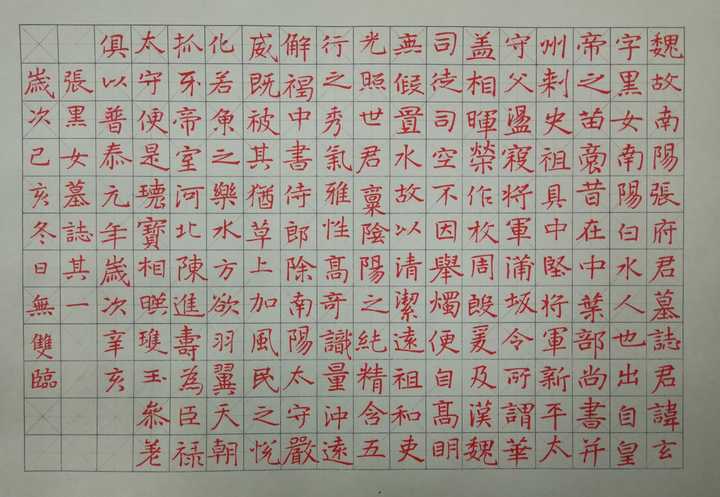 魏故南陽張府君墓誌君諱玄
字黑女南陽白水人也出自皇
帝之苗裔昔在中葉部尚書并
州刺史祖具中堅将軍新平太
守父盪寇将軍蒲坂令所謂華
盖相暉榮作枚周殷爰及漢魏
司徒司空不因舉燭便自高明
無假置水故以清潔遠祖和吏
光照世君稟陰陽之純精含五
行之秀氣雅性高奇識量沖遠
解褐中書侍郎除南陽太守嚴
威既被其猶草上加風民之悅
化若魚之樂水方欲羽翼天朝
抓牙帝室河北陳進壽為臣禄
太守便是瓌寶相暎瓊玉叅差
俱以普泰元年歲次辛亥
張黑女墓誌其一
歲次己亥冬日無雙臨